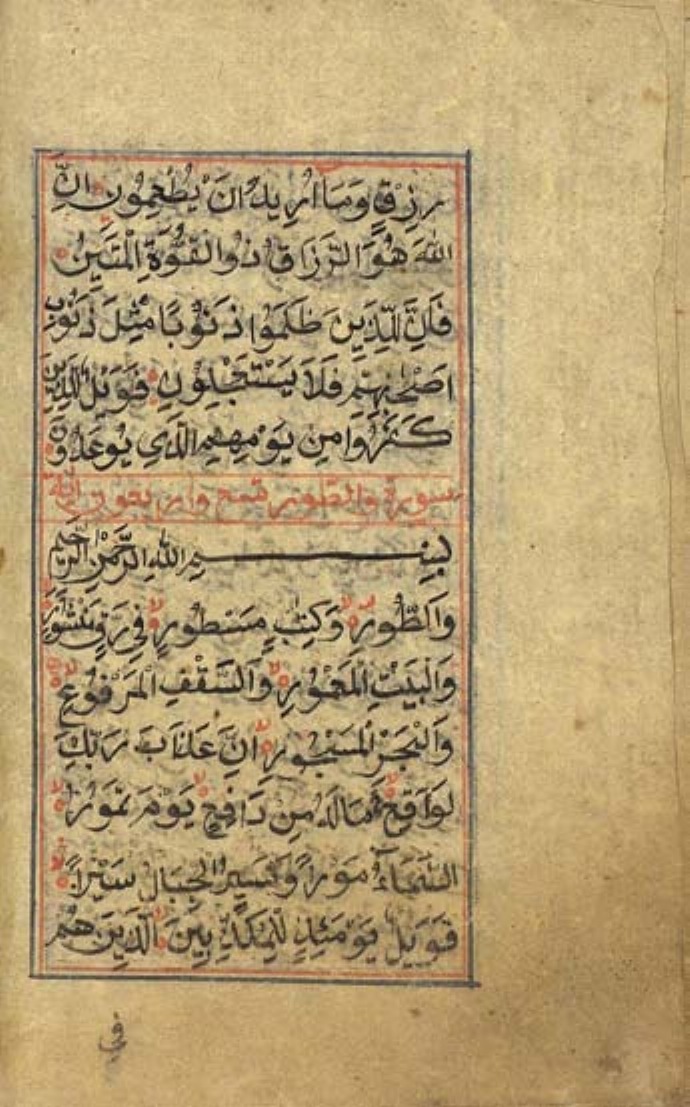 رِزْقٍ وَمَا اُرِيدُ اَنْ يُطْعِمُونِ اِنَّ
اللّٰهَ هُوَ الرَّزَّاقُ ذُو الْقُوَّةِ الْمَتِينُ
فَاِنَّ لِلَّذِينَ ظَلَمُوا ذَنُوبًا مِثْلَ ذَنُوبِ
اَصْحَابِهِمْ فَلَا يَسْتَعْجِلُونِ فَوَيْلٌ لِلَّذِينَ
كَفَرُوا مِنْ يَوْمِهِمِ الَّذِي يُوعَدُونَ
سورة والطور تسع واربعون اية
بِسْمِ اللّٰهِ الرَّحْمٰنِ الرَّحِيمِ
وَالطُّورِ وَكِتٰبٍ مَسْطُورٍ فِي رَقٍّ مَنْشُورٍ
وَالْبَيْتِ الْمَعْمُورِ وَالسَّقْفِ الْمَرْفُوعِ
وَالْبَحْرِ الْمَسْجُورِ اِنَّ عَذَابَ رَبِّكَ
لَوَاقِعٌ مَا لَهُ مِنْ دَافِعٍ يَوْمَ تَمُورُ
السَّمَاۤءُ مَوْرًا وَتَسِيرُ الْجِبَالُ سَيْرًا
فَوَيْلٌ يَوْمَئِذٍ لِلْمُكَذِّبِينَ الَّذِينَ هُمْ
فِي